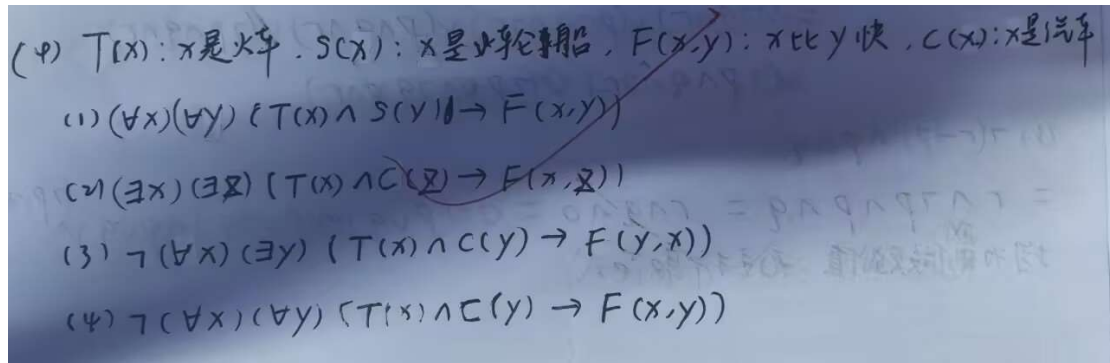 (4) T(x): x是火车. S(x): x是轮船, F(x,y): x比y快, C(x): x是汽车
(1) (∀x)(∀y) (T(x)∧S(y)→F(x,y))
(2) (∃x)(∃z) (T(x)∧C(z)→F(x,z))
(3) ¬(∀x)(∃y) (T(x)∧C(y)→F(y,x))
(4) ¬(∀x)(∀y) (T(x)∧C(y)→F(x,y))